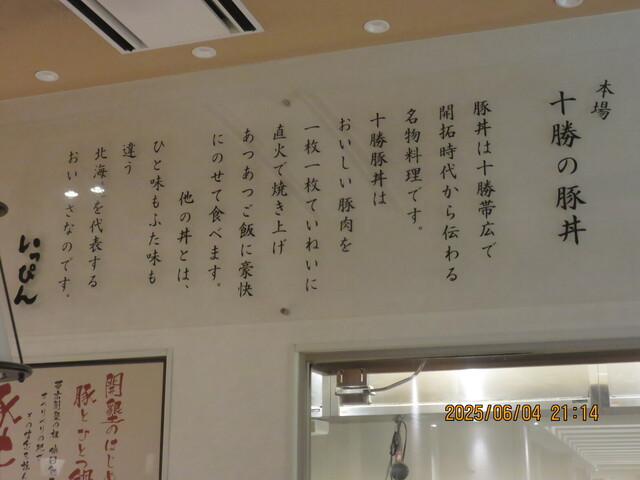 本場
十勝の豚丼
豚丼は十勝帯広で
開拓時代から伝わる
名物料理です。
十勝豚丼は
おいしい豚肉を
一枚一枚ていねいに
直火で焼き上げ
あつあつご飯に豪快
にのせて食べます。
他の丼とは、
ひと味もふた味も
違う
北海 を代表する
おい さなのです。
いっぴん
開墾のはじ
豚とひとつ鍋
2025/06/04 21:14